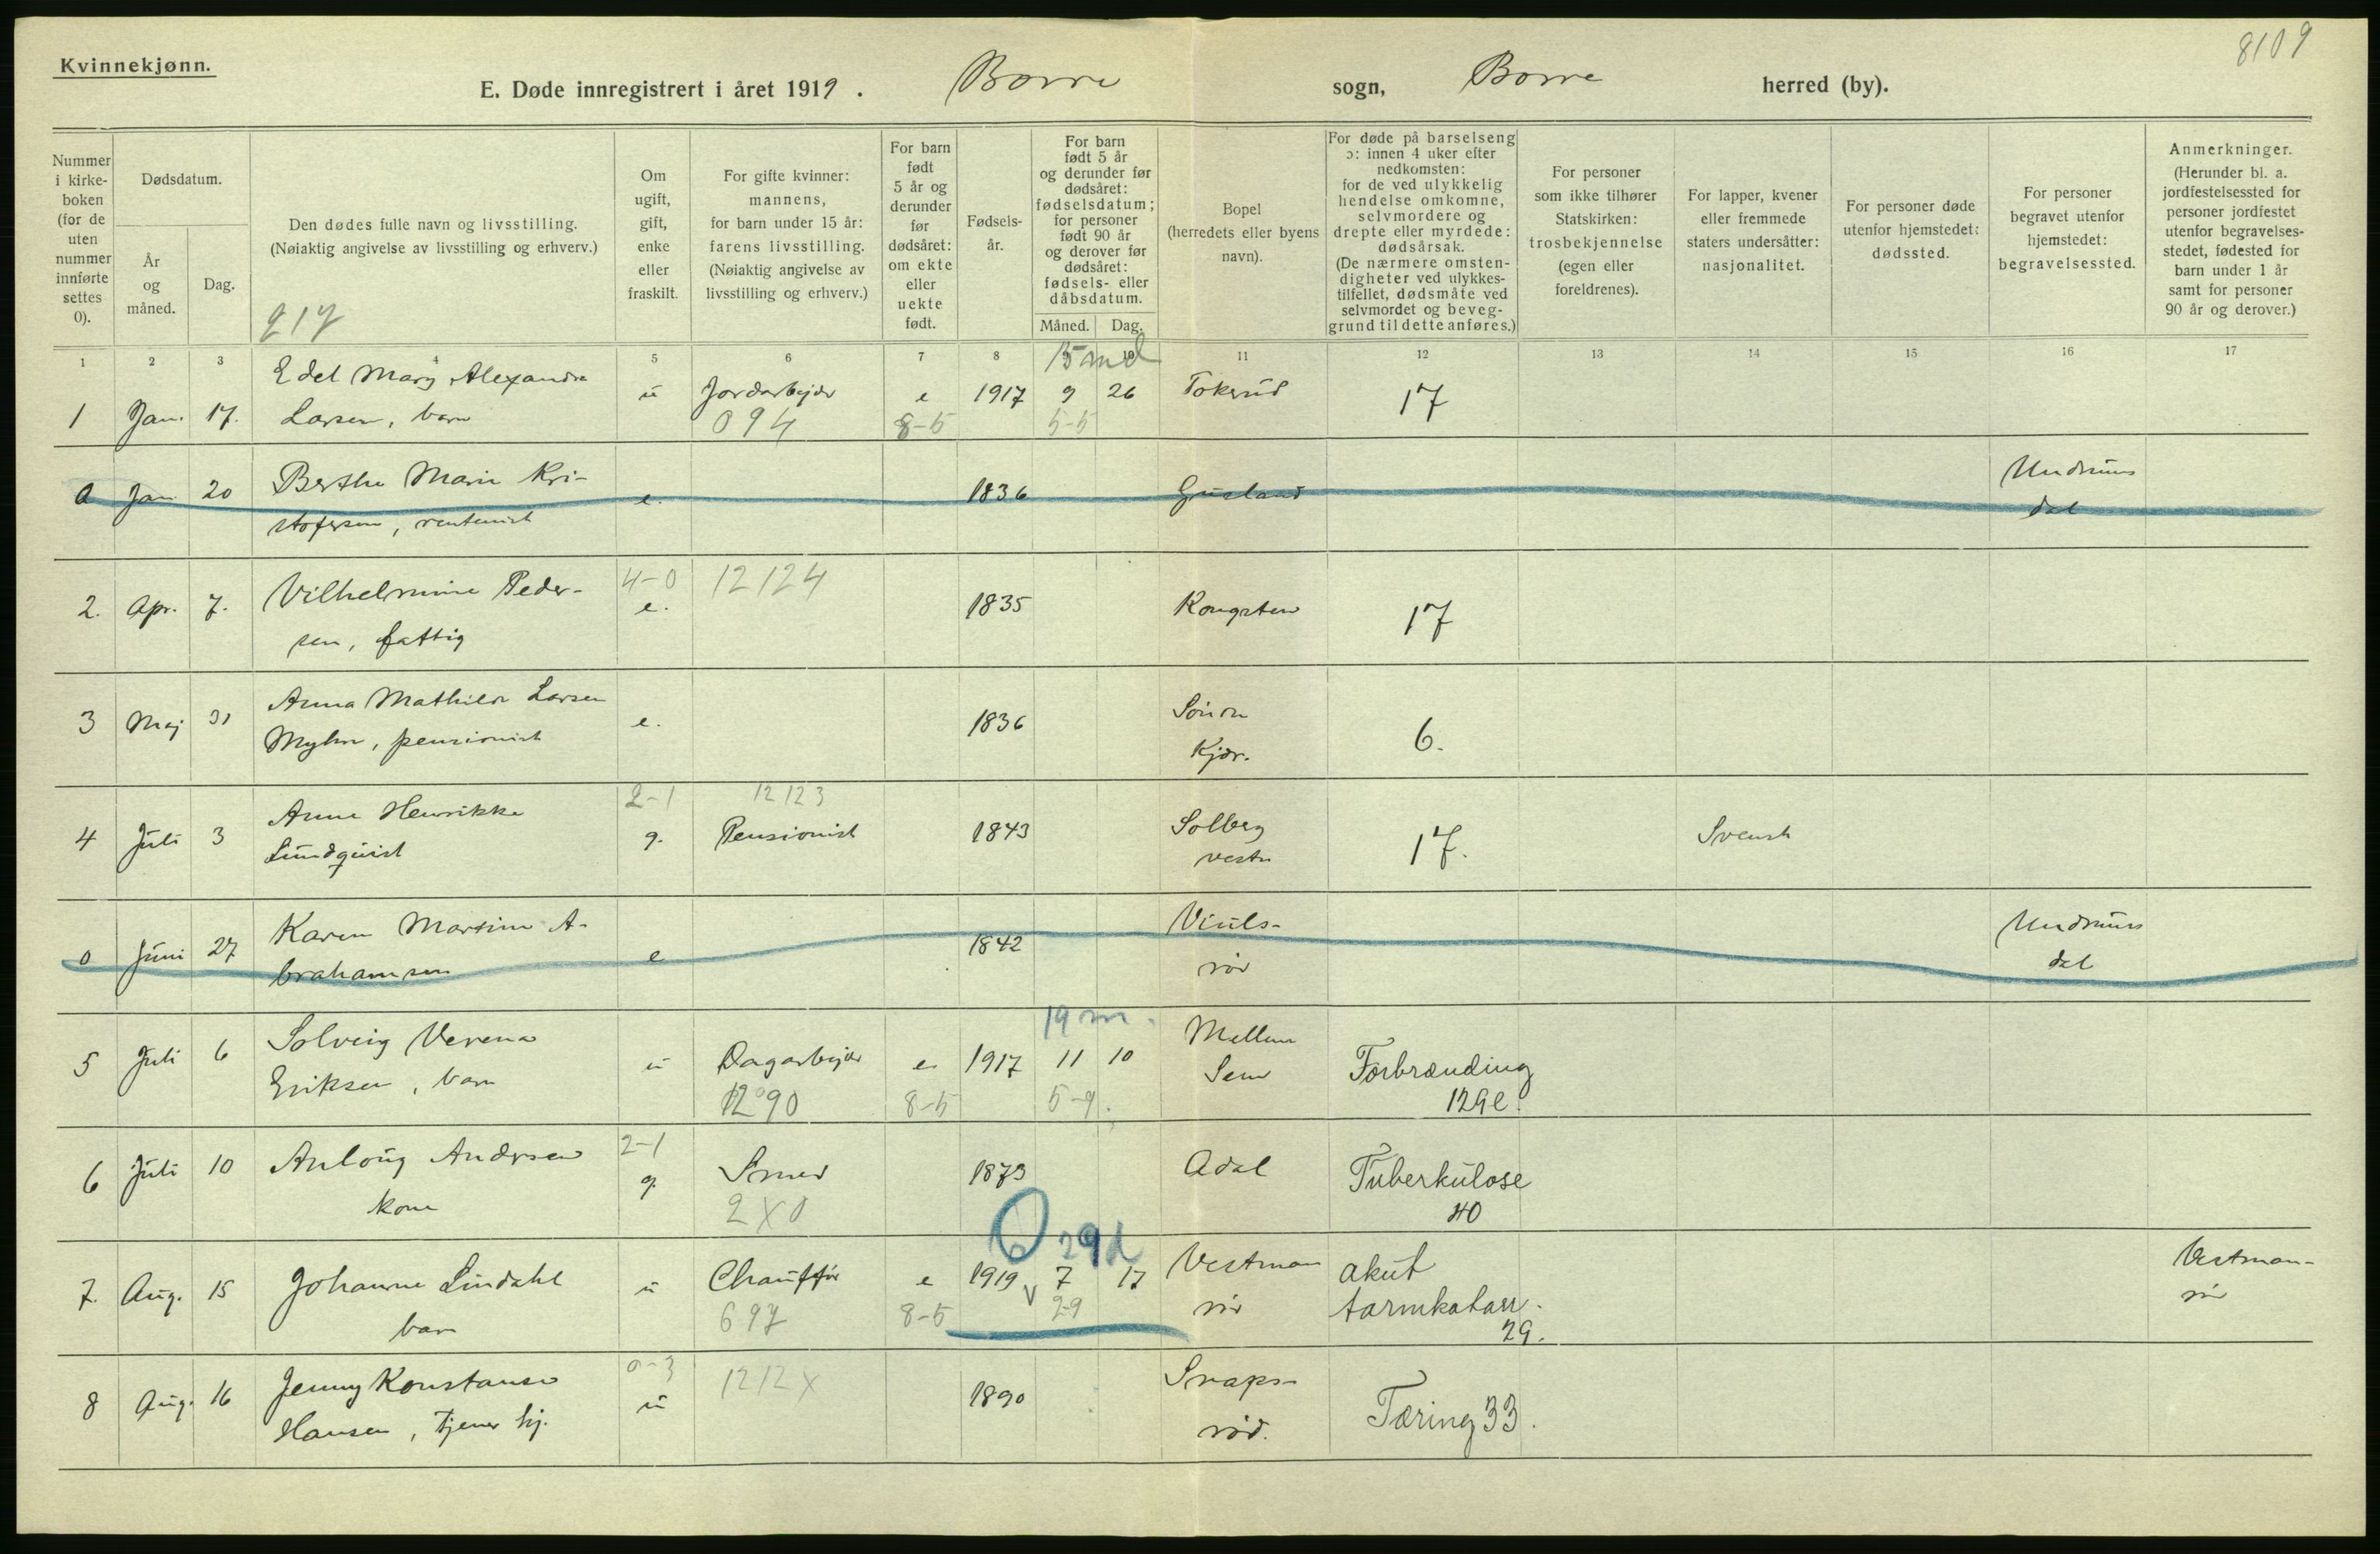 8109
Kvinnekjønn.
E. Døde innregistrert i året 1919. Borre sogn, Borre herred (by).
Nummer i kirke-boken (for de uten nummer innførte settes 0).
Dødsdatum.
År og måned.
Dag.
Den dødes fulle navn og livsstilling.
(Nøiaktig angivelse av livsstilling og erhverv.)
217
Om ugift, gift, enke eller fraskilt.
For gifte kvinner: mannens, for barn under 15 år: farens livsstilling. (Nøiaktig angivelse av livsstilling og erhverv.)
For barn født 5 år og derunder før dødsåret: om ekte eller uekte født.
Fødsels-år.
For barn født 5 år og derunder før dødsåret: fødselsdatum; for personer født 90 år og derover før dødsåret: fødsels- eller dåbsdatum.
Måned. Dag.
Bopel (herredets eller byens navn).
For døde på barselseng ɔ: innen 4 uker efter nedkomsten: for de ved ulykkelig hendelse omkomne, selvmordere og drepte eller myrdede: dødsårsak. (De nærmere omsten-digheter ved ulykkes-tilfellet, dødsmåte ved selvmordet og beveg-grund til dette anføres.)
For personer som ikke tilhører Statskirken: trosbekjennelse (egen eller foreldrenes).
For lapper, kvener eller fremmede staters undersåtter: nasjonalitet.
For personer døde utenfor hjemstedet: dødssted.
For personer begravet utenfor hjemstedet: begravelsessted.
Anmerkninger. (Herunder bl. a. jordfestelsessted for personer jordfestet utenfor begravelses-stedet, fødested for barn under 1 år samt for personer 90 år og derover.)
1 2 3 4 5 6 7 8 9 10 11 12 13 14 15 16 17
15 md
1 Jan. 17. Edel Mary Alexandra u Jordarbejder e 1917 9 26 Tokerud 17
Larsen, barn 094 8-5 5-5
0 Jan 20 Berthe Marie Kri- e. 1836 Gusland Undrums
stofersen, rentenist dal
4-0 12124
2. Apr. 7. Vilhelmine Peder- e. 1835 Kongsten 17
sen, fattig
3 Maj 31 Anna Mathilde Larsen e. 1836 Søndre 6.
Myhre, pensionist Kjær.
2-1 12123
4 Juli 3 Anne Henrikke g. Pensionist 1843 Solberg 17. Svensk
Lundquist vestre
0 Juni 27 Karen Martine A- e 1842 Viuls- Undrums
brahamsen rød dal
19 m.
5 Juli 6 Solveig Verena u Dagarbejder e 1917 11 10 Mellem Forbrænding
Eriksen, barn 12090 8-5 5-9. Sem 129e.
2-1
6 Juli 10 Anlaug Andersen g. Smed 1873 Adal Tuberkulose
kone 2X0 40
0 29d
7. Aug. 15 Johanne Lindahl u Chauffør e 1919 7 17 Vestman akut Vestman-
barn 697 8-5 v 29 rød tarmkatarr. rød
29.
0-3 1212X
8 Aug. 16 Jenny Konstanse u 1890 Snaps- Tæring 33.
Hansen, tjener hj. rød.